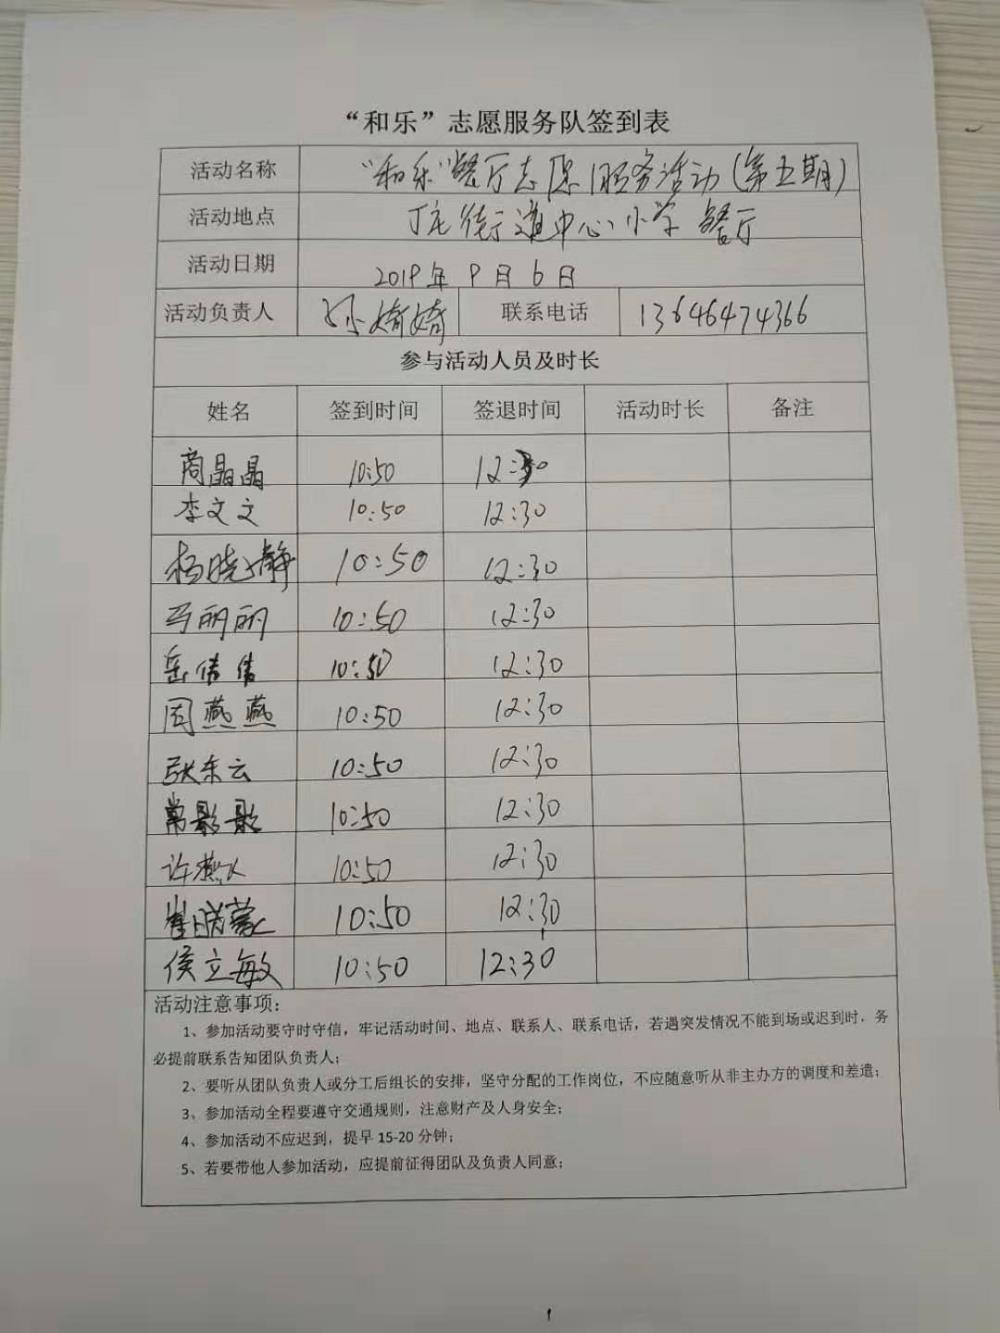 “和乐”志愿服务队签到表
活动名称 “和乐”餐厅志愿服务活动(第五期)
活动地点 丁庄街道中心小学餐厅
活动日期 2019年9月6日
活动负责人 孙婷婷 联系电话 13646474366
参与活动人员及时长
姓名 签到时间 签退时间 活动时长 备注
商晶晶 10:50 12:30
李文文 10:50 12:30
杨晓静 10:50 12:30
马丽丽 10:50 12:30
岳倩倩 10:50 12:30
周燕燕 10:50 12:30
张东云 10:50 12:30
常影影 10:50 12:30
许燕 10:50 12:30
崔 蒙 10:50 12:30
侯立敏 10:50 12:30
活动注意事项:
1、参加活动要守时守信，牢记活动时间、地点、联系人、联系电话，若遇突发情况不能到场或迟到时，务
必提前联系告知团队负责人;
2、要听从团队负责人或分工后组长的安排，坚守分配的工作岗位，不应随意听从非主办方的调度和差遣;
3、参加活动全程要遵守交通规则，注意财产及人身安全;
4、参加活动不应迟到，提早 15-20 分钟;
5、若要带他人参加活动，应提前征得团队及负责人同意;